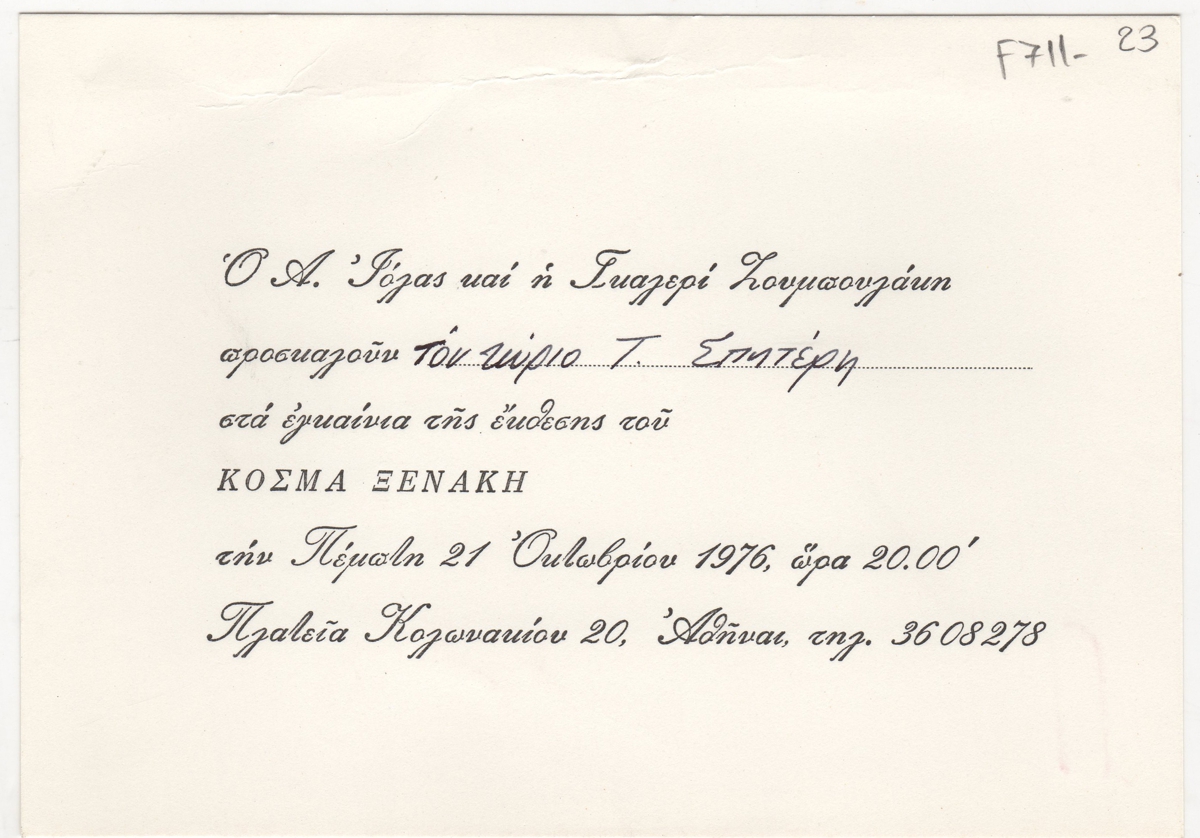 F711- 23
Ὁ Α. Ἰόλας καί ἡ Γκαλερί Ζουμπουλάκη
προσκαλοῦν τόν κύριο Τ. Σπητέρη
στά ἐγκαίνια τῆς ἔκθεσης τοῦ
ΚΟΣΜΑ ΞΕΝΑΚΗ
τήν Πέμπτη 21 Ὀκτωβρίου 1976, ὥρα 20.00'
Πλατεῖα Κολωνακίου 20, Ἀθῆναι, τηλ. 3608278